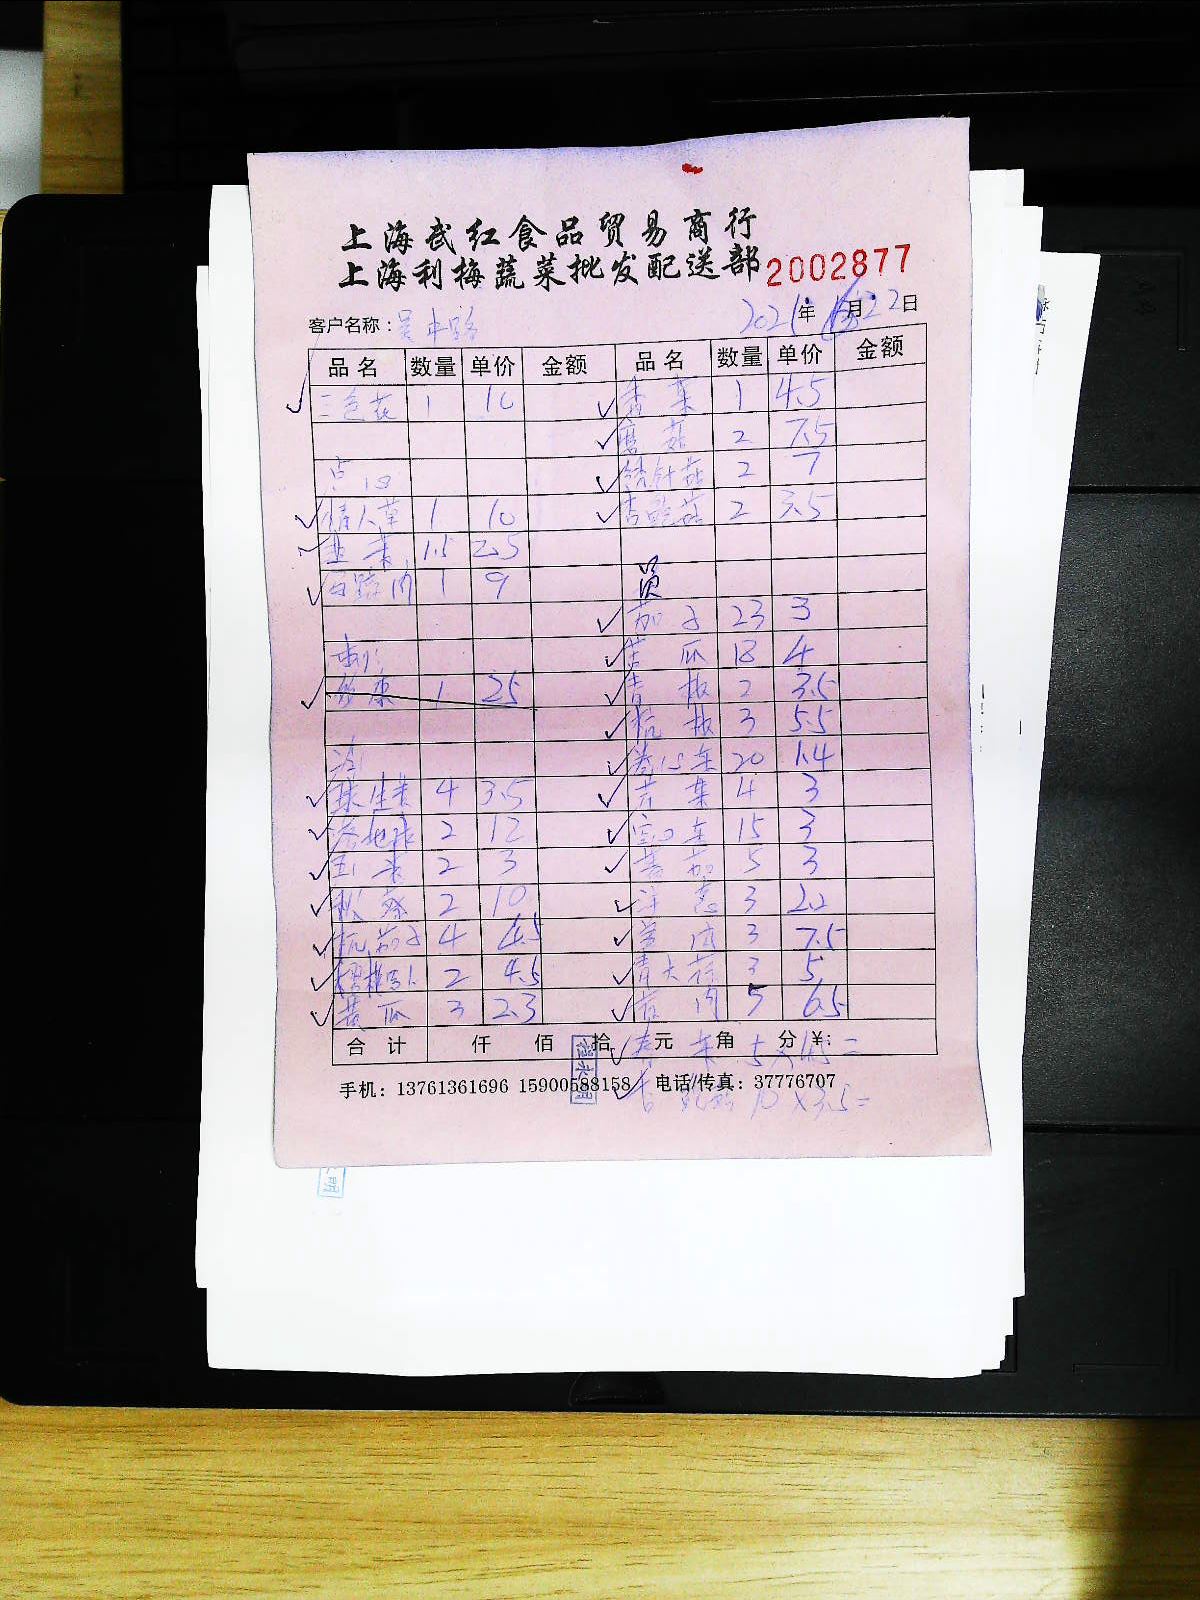 上海武红食品贸易商行
上海利梅蔬菜批发配送部 2002877
客户名称：吴中路 2021年 22日
品名 数量 单价 金额 品名 数量 单价 金额
三色花 1 10 香菜 1 4.5
蘑菇 2 7.5
点心 金针菇 2 7
情人草 1 10 杏鲍菇 2 3.5
韭菜 1.5 2.5
西蓝花 1 9
茄子 23 3
苦瓜 18 4
1 25 青椒 2 3.5
杭椒 3 5.5
卷心菜 20 1.4
球生菜 4 3.5 芹菜 4 3
2 12 空心菜 15 3
2 3 番茄 5 3
秋葵 2 10 洋葱 3 2.2
杭茄子 4 4.5 3 7.5
樱桃萝卜 2 4.5 青大蒜 3 5
黄瓜 3 2.3 5 6.5
合计 仟 佰 拾 元 角 分 ¥：
5 × 4.5 =
手机：13761361696 15900588158 电话/传真：37776707
杏鲍菇 10 × 3.5 =